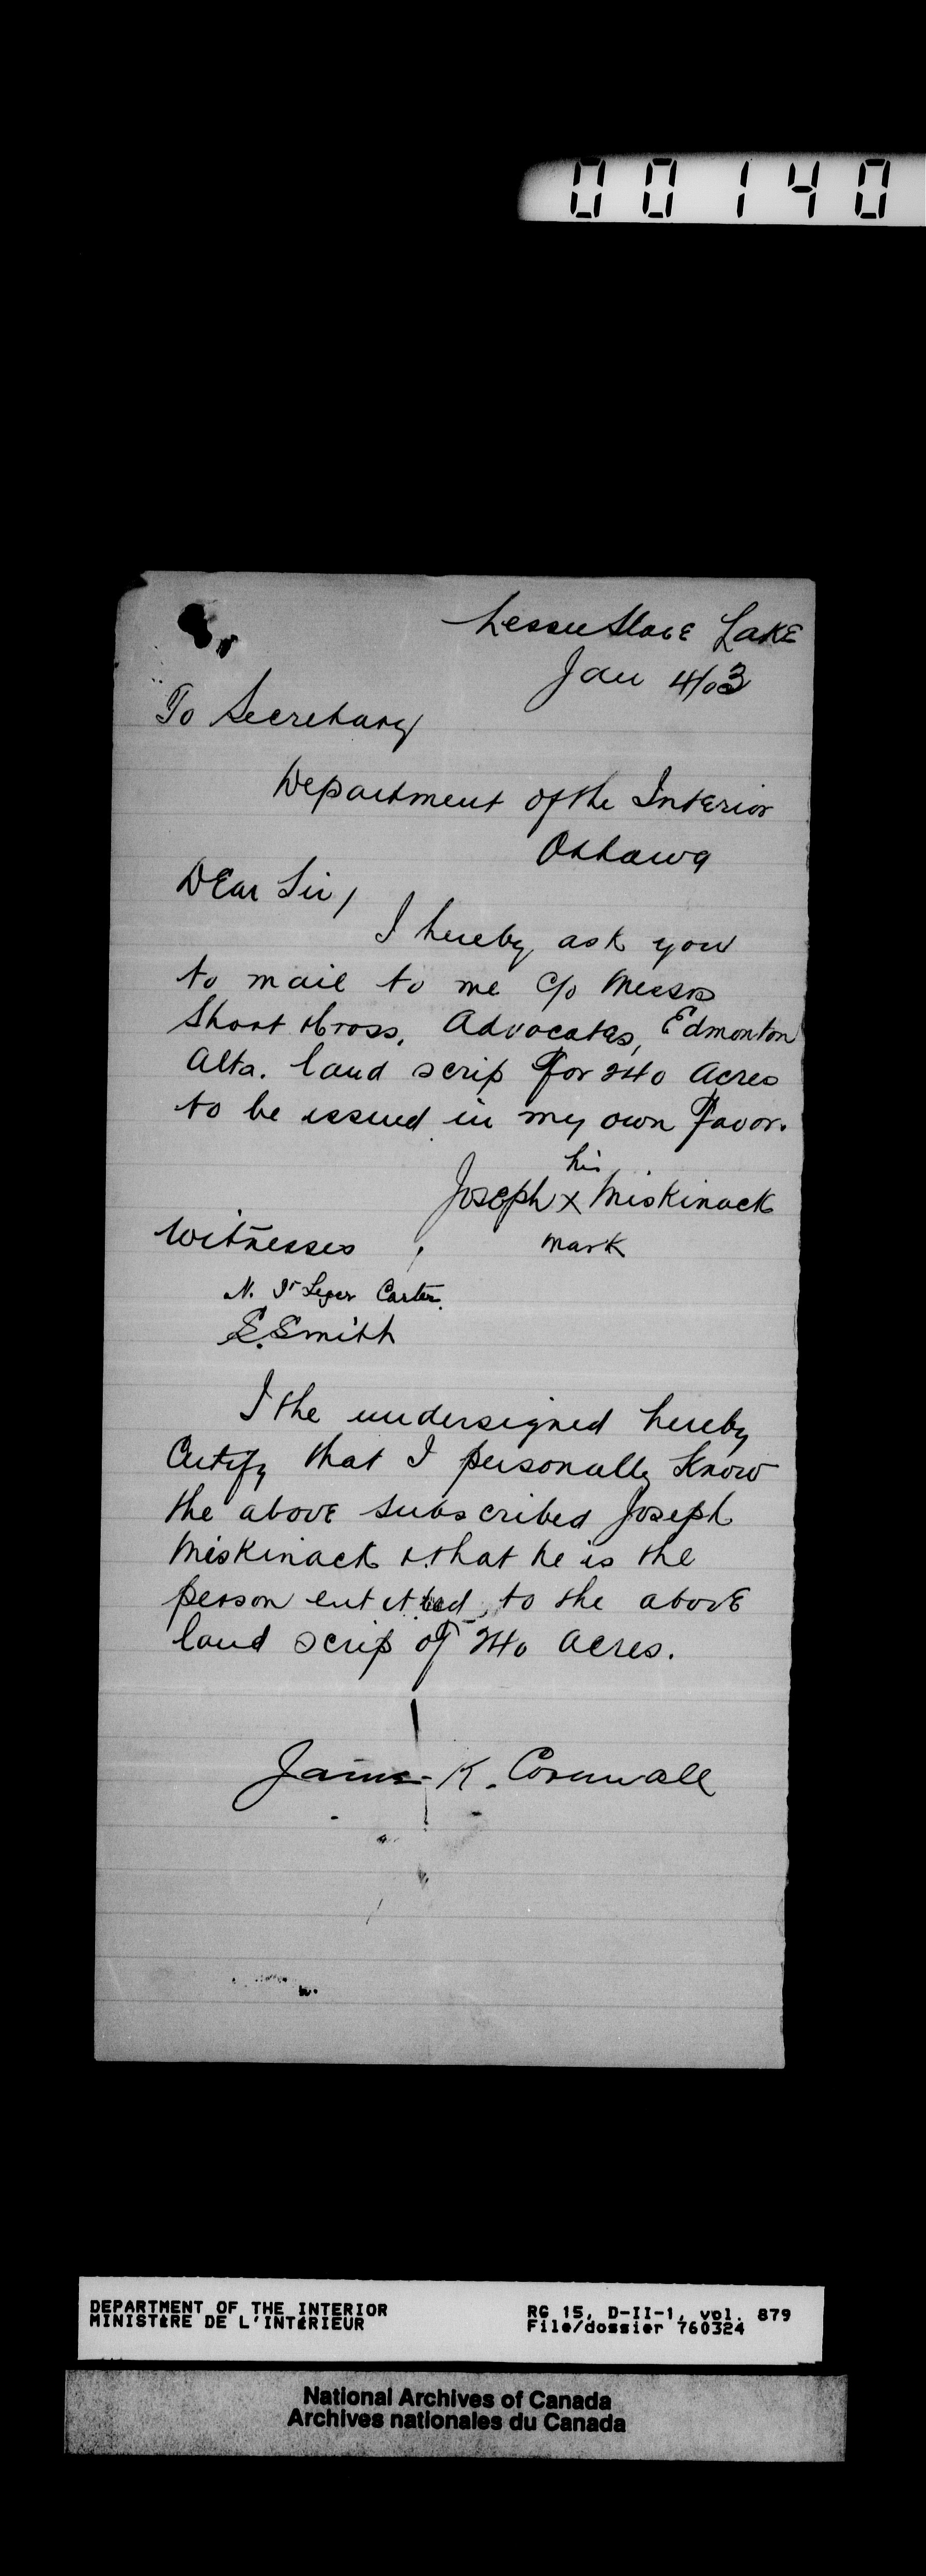 00140
Lesser Slave Lake
Jan 4/03
To Secretary
Department of the Interior
Ottawa
Dear Sir,
I hereby ask you
to mail to me c/o Messrs
Short & Cross, Advocates, Edmonton
Alta. land scrip for 240 acres
to be issued in my own favor.
his
Joseph x Miskinack
mark
Witnesses
N. St Leger Carter.
E. Smith
I the undersigned hereby
Certify that I personally know
the above subscribed Joseph
Miskinack & that he is the
person entitled to the above
land scrip of 240 acres.
James K. Cornwall
DEPARTMENT OF THE INTERIOR RG 15, D-II-1, vol. 879
MINISTÈRE DE L'INTÉRIEUR File/dossier 760324
National Archives of Canada
Archives nationales du Canada